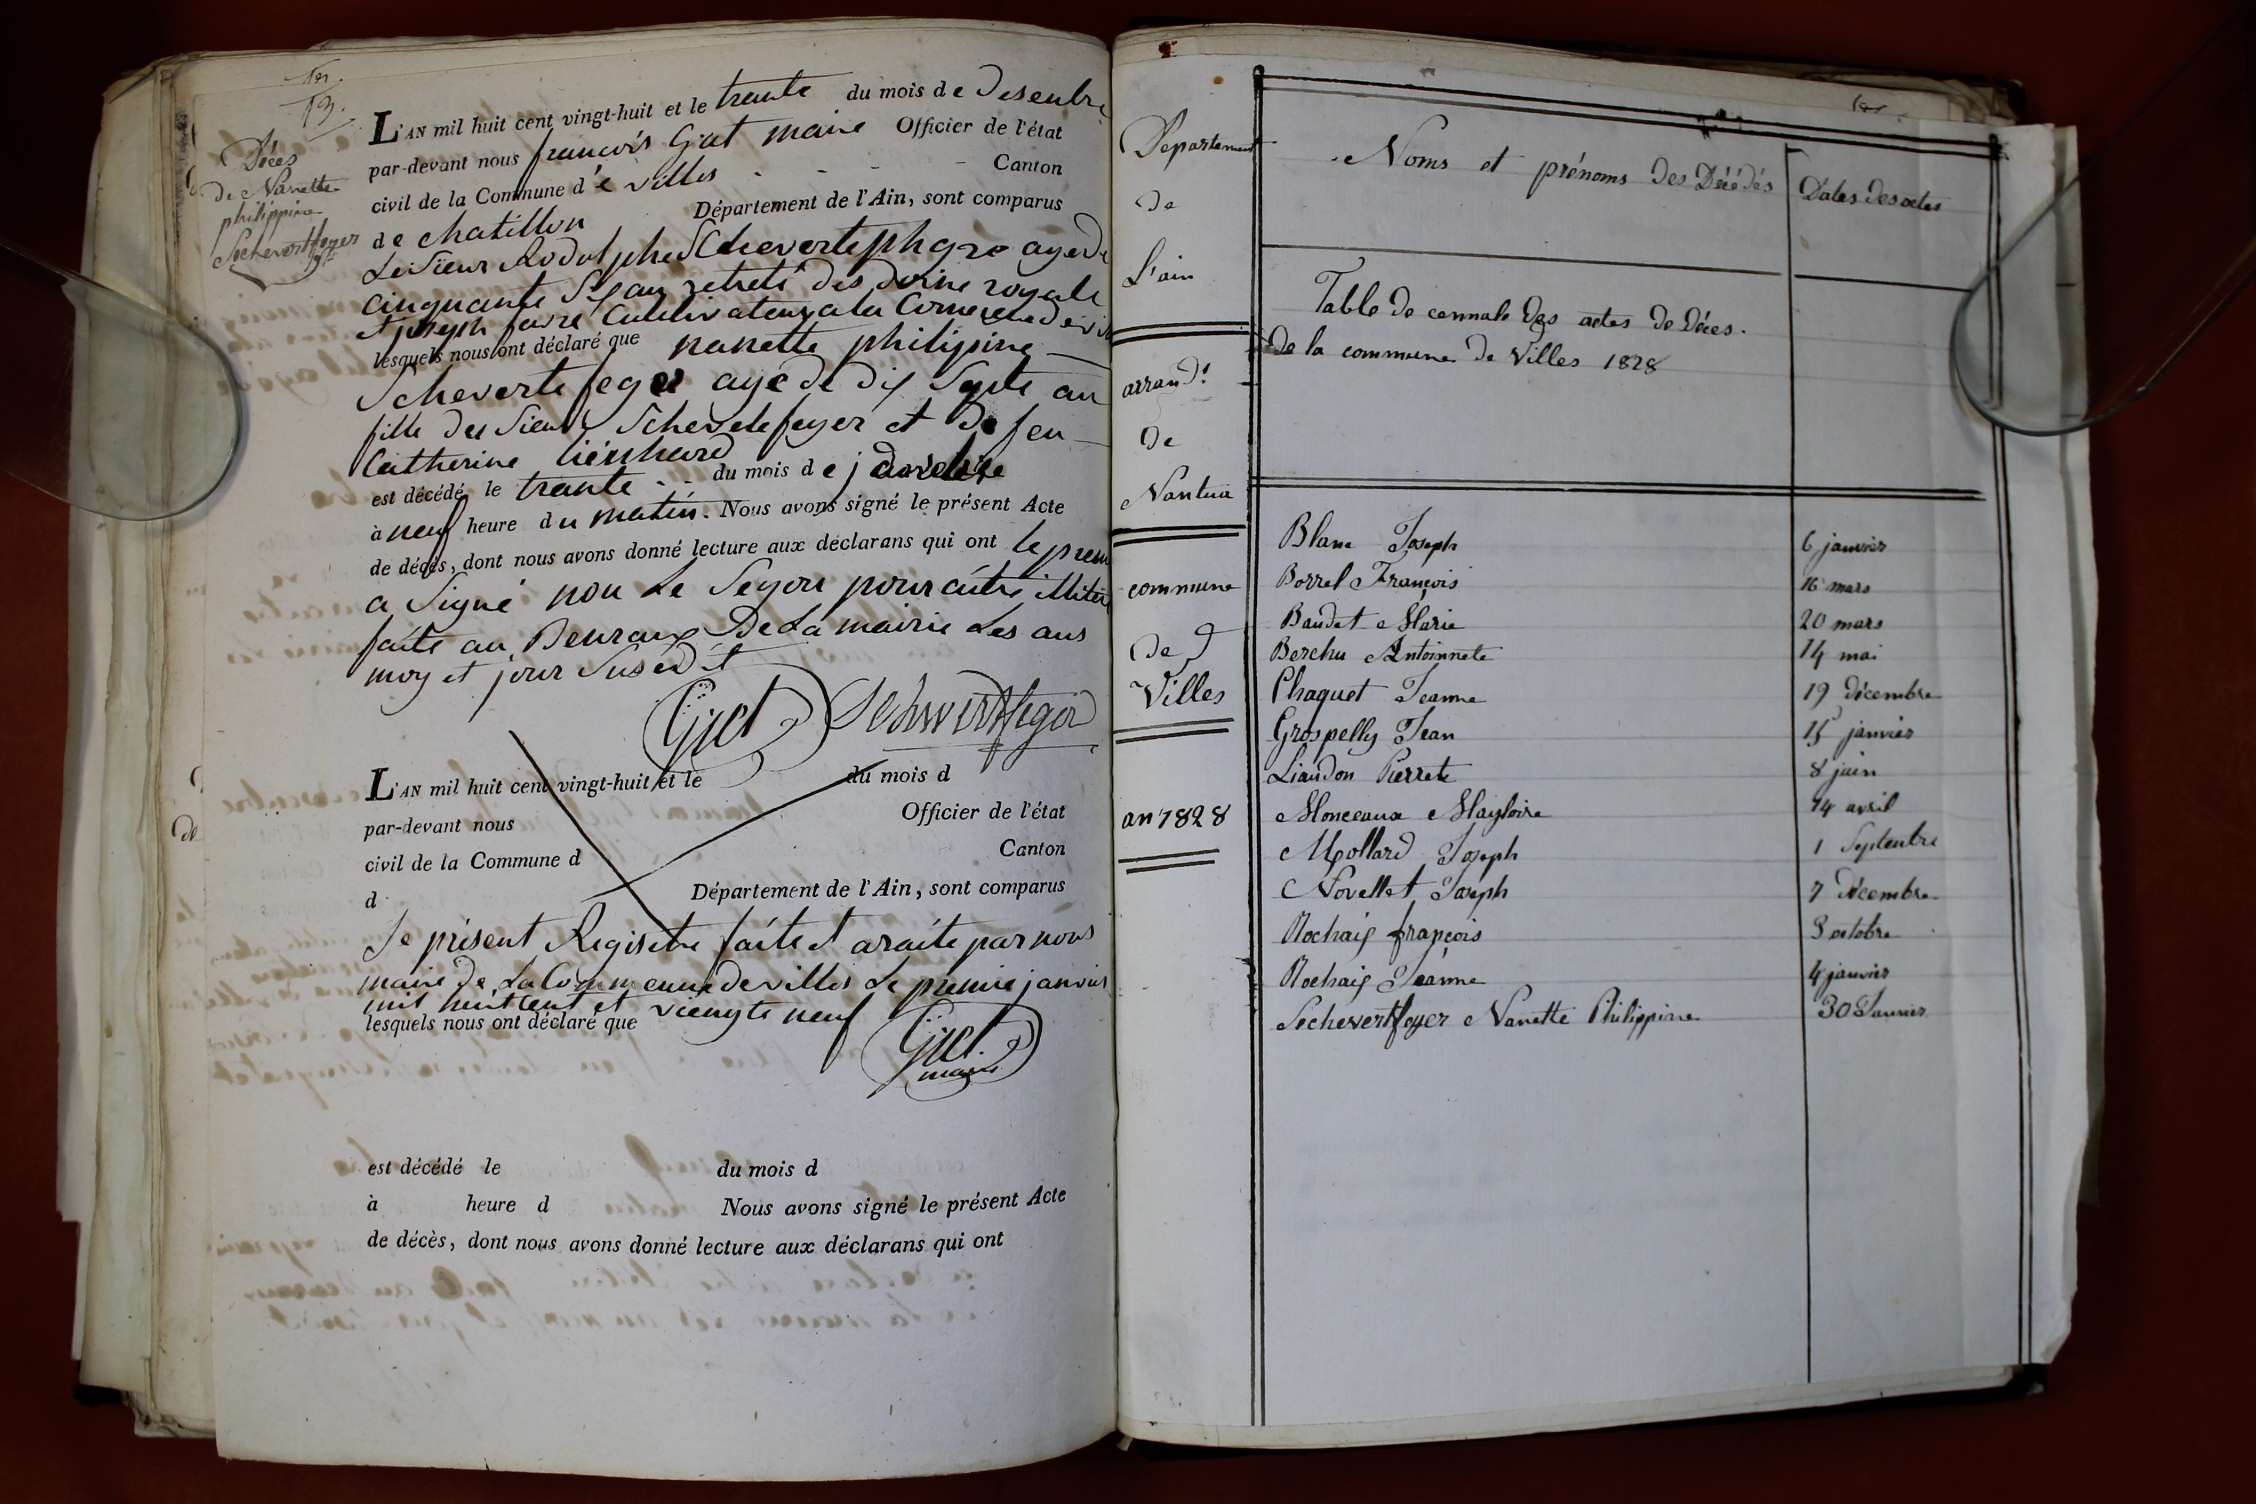 13.
Décès
de Nanette
philippine
Sechevertfeyer
L'AN mil huit cent vingt-huit et le trante du mois de desenbre
par-devant nous francois Gist maire Officier de l'état
civil de la Commune de villes Canton
de chatillon Département de l'Ain, sont comparus
Le Sieur Rodolphe agé de
cinquante Sis an retreté des royale
et joseph favre Cultivateur a la Comeune de
lesquels nous ont déclaré que nanette philipine
Schevertefeger agé de dix Septe an
fille du Sieur Schevetefeyer et de feu
Catherine liénhard
est décédé le trante du mois de
à neuf heure du matin. Nous avons signé le présent Acte
de décès, dont nous avons donné lecture aux déclarans qui ont le
a Signé non Le Segon pour
faite au Beuraux De La mairie Les ans
moy et jour Susedit
L'AN mil huit cent vingt-huit et le du mois d
par-devant nous Officier de l'état
civil de la Commune d Canton
d Département de l'Ain, sont comparus
Le présent Registre faite et araite par nous
maire de La Commeune de villes Le premie janvier
mil huit cent et viengte neuf
lesquels nous ont déclaré que
maire
est décédé le du mois d
à heure d Nous avons signé le présent Acte
de décès, dont nous avons donné lecture aux déclarans qui ont
Departement
de
L'ain
arrand.t
de
Nantua
commune
de
Villes
an 1828
Noms et prénoms des Décédés Dates des actes
Table de cennale des actes de Déces.
De la commune de Villes 1828
Blanc Joseph 6 janvier
Borrel François 16 mars
Baudet Marie 20 mars
Berchu Antoinnete 14 mai
Chaquet Jeanne 19 décembre
Grospelly Jean 15 janvier
Liaudon Pierrete 8 juin
Monceaux Magloire 14 avril
Mollard Joseph 1 Septenbre
Novellet Joseph 7 Décembre
Rochaix françois 3 octobre
Rochaix Jeanne 4 janvier
Sechevertfeyer Nanette Philippine 30 Janvier